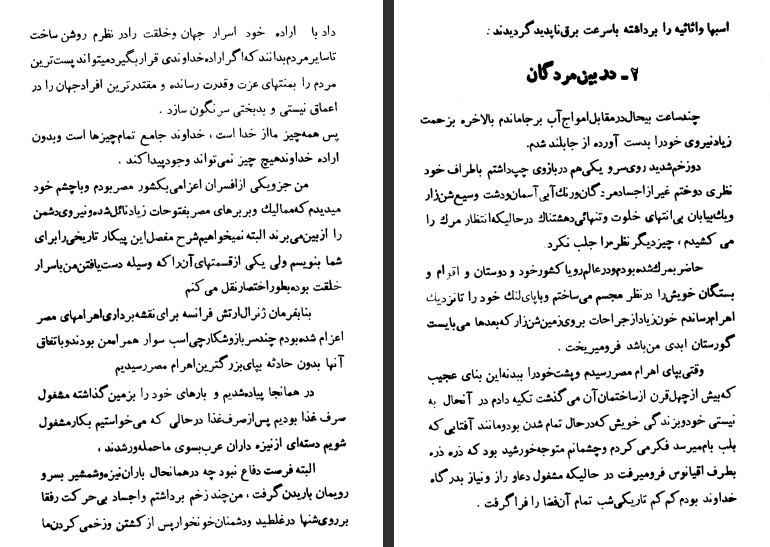 داد با اراده خود اسرار جهان وخلقت رادر نظرم روشن ساخت
تاسایر مردم بدانند که اگر اراده خداوندی قرار بگیرد میتواند پست ترین
مردم را بمنتهای عزت وقدرت رسانده و مقتدرترین افراد جهان را در
اعماق نیستی و بدبختی سرنگون سازد .
پس همه چیز مااز خدا است ، خداوند جامع تمام چیزها است وبدون
اراده خداوند هیچ چیز نمی تواند وجود پیدا کند .
من جزو یکی از افسران اعزامی بکشور مصر بودم وباچشم خود
میدیدم که ممالیك وبربرهای مصر بفتوحات زیاد نائل شده و نیروی دشمن
را از بین می برند البته نمیخواهیم شرح مفصل این پیکار تاریخی را برای
شما بنویسم ولی یکی از قسمتهای آن را که وسیله دست یافتن من باسرار
خلقت بوده بطور اختصار نقل می کنم
بنا بفرمان ژنرال ارتش فرانسه برای نقشه برداری اهرامهای مصر
اعزام شده بودم چند سرباز وشکارچی اسب سوار همراه من بودند و با تفاق
آنها بدون حادثه بپای بزرگترین اهرام مصر رسیدیم
در همانجا پیاده شدیم و بارهای خود را بزمین گذاشته مشغول
صرف غذا بودیم پس از صرف غذا درحالی که می خواستیم بکار مشغول
شویم دسته ای از نیزه داران عرب بسوی ما حمله ور شدند ،
البته فرصت دفاع نبود چه در همانحال باران نیزه و شمشیر بسر و
رویمان باریدن گرفت ، من چند زخم برداشتم و اجساد بی حرکت رفقا
بر روی شنها در غلطید ودشمنان خونخوار پس از کشتن و زخمی کردن ما
اسبها واثاثیه را برداشته باسرعت برق ناپدید گردیدند .
۲ـ در بین مردگان
چند ساعت بیحال در مقابل امواج آب بر جا ماندم بالاخره بزحمت
زیاد نیروی خود را بدست آورده از جا بلند شدم.
دوزخم شدید روی سر و یکی هم در بازوی چپ داشتم باطراف خود
نظری دوختم غیر از اجساد مردگان ورنك آبی آسمان ودشت وسیع شن زار
ویك بیابان بی انتهای خلوت وتنهائی دهشتناك درحالیکه انتظار مرك را
می کشیدم ، چیز دیگر نظر مرا جلب نکرد
حاضر بمرك شده بودم و در عالم رویا کشور خود و دوستان و اقوام و
بستگان خویش را در نظر مجسم می ساختم و با پای لنك خود را تا نزدیك
اهرام رساندم خون زیاد از جراحات بروی زمین شن زار که بعدها می بایست
گورستان ابدی من باشد فرومیریخت .
وقتی بپای اهرام مصر رسیدم و پشت خود را ببدنه این بنای عجیب
که بیش از چهل قرن از ساختمان آن می گذشت تکیه دادم در آنحال به
نیستی خود و بزندگی خویش که در حال تمام شدن بود و مانند آفتابی که
بلب بام میرسد فکر می کردم و چشمانم متوجه خورشید بود که ذره ذره
بطرف اقیانوس فرومیرفت در حالیکه مشغول دعا و راز و نیاز بدرگاه
خداوند بودم کم کم تاریکی شب تمام آن فضا را فرا گرفت .